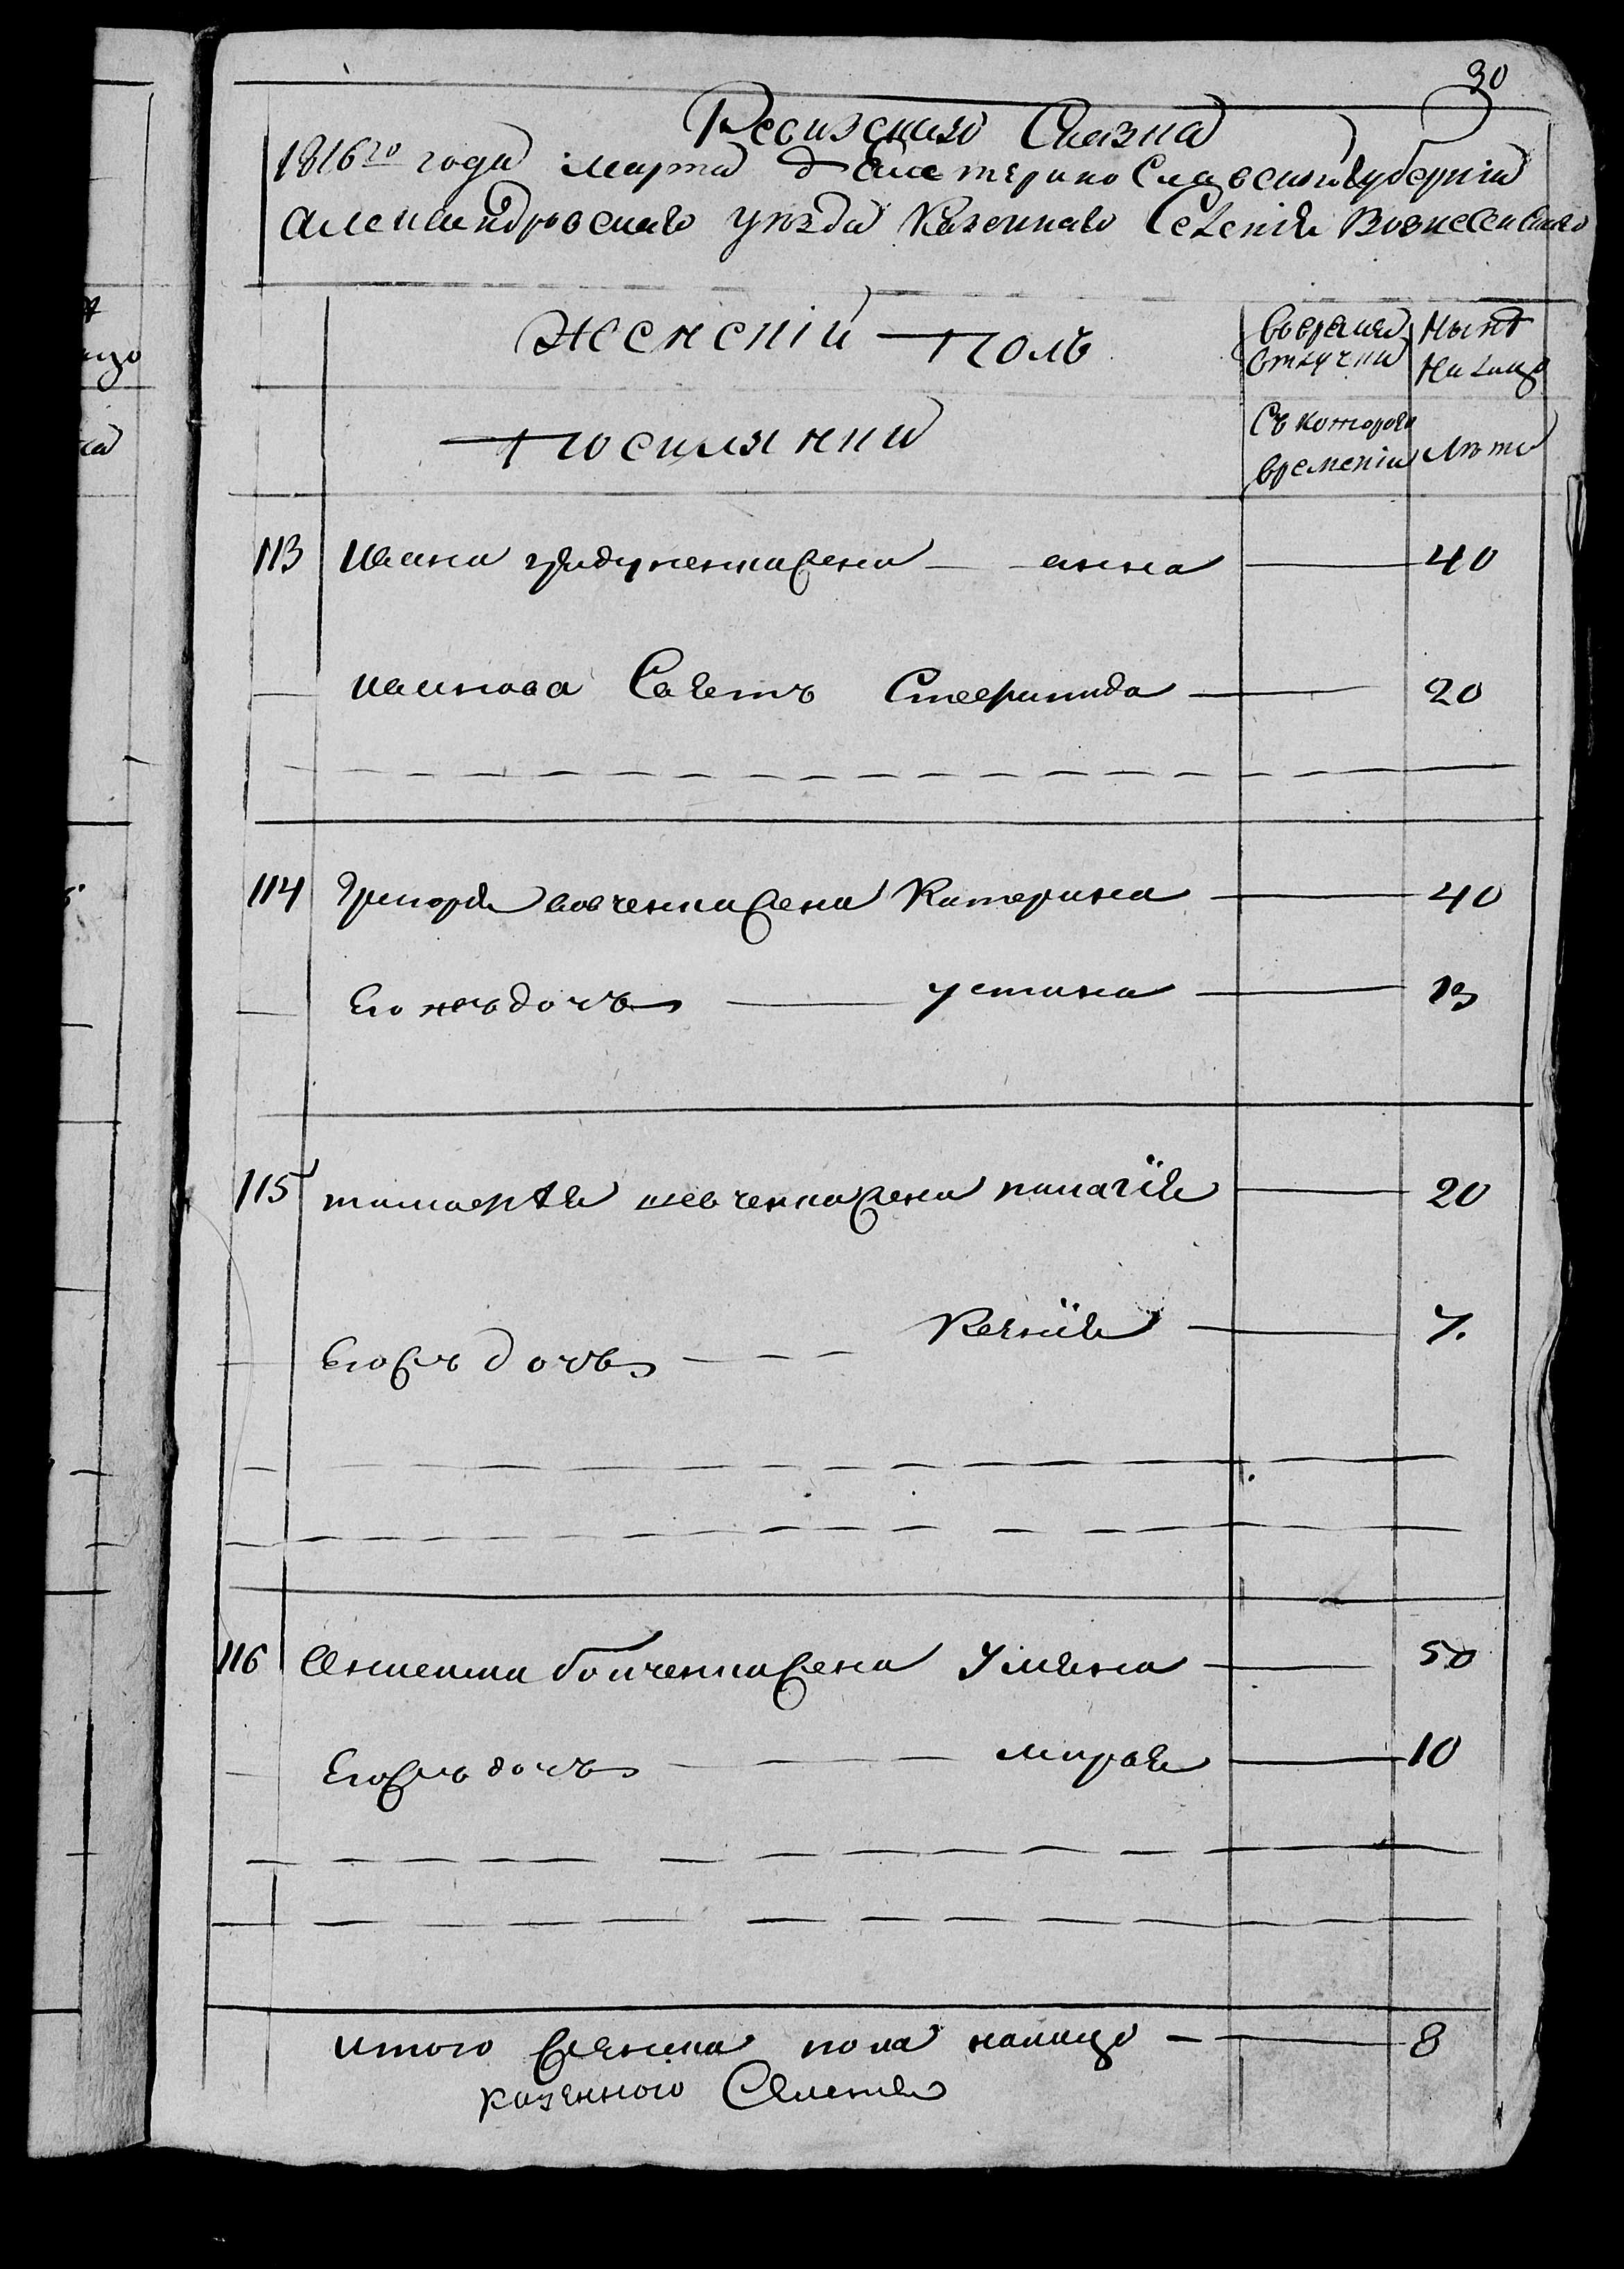 30
Ревизская Сказка
1816го года марта д Екатеринославской губернии
Александровскаго уезда Казеннаго Селения Вознесенскаго
Женский поль
во время отлучки
Ныне на лицо
Поселянки
Съ которого времени
Лета
113 Ивана жена анна 40
иванова Саветъ Степанида 20
114 Григория вовченка жена Катерина 40
Его жъ дочь устина 13
115 тимофея шевченка жена палагия 20
Его жъ дочь Ксения 7.
116 бойченка жена Улияна 50
Его жъ дочь марья 10
итого женска пола налицо 8
казенного Селения